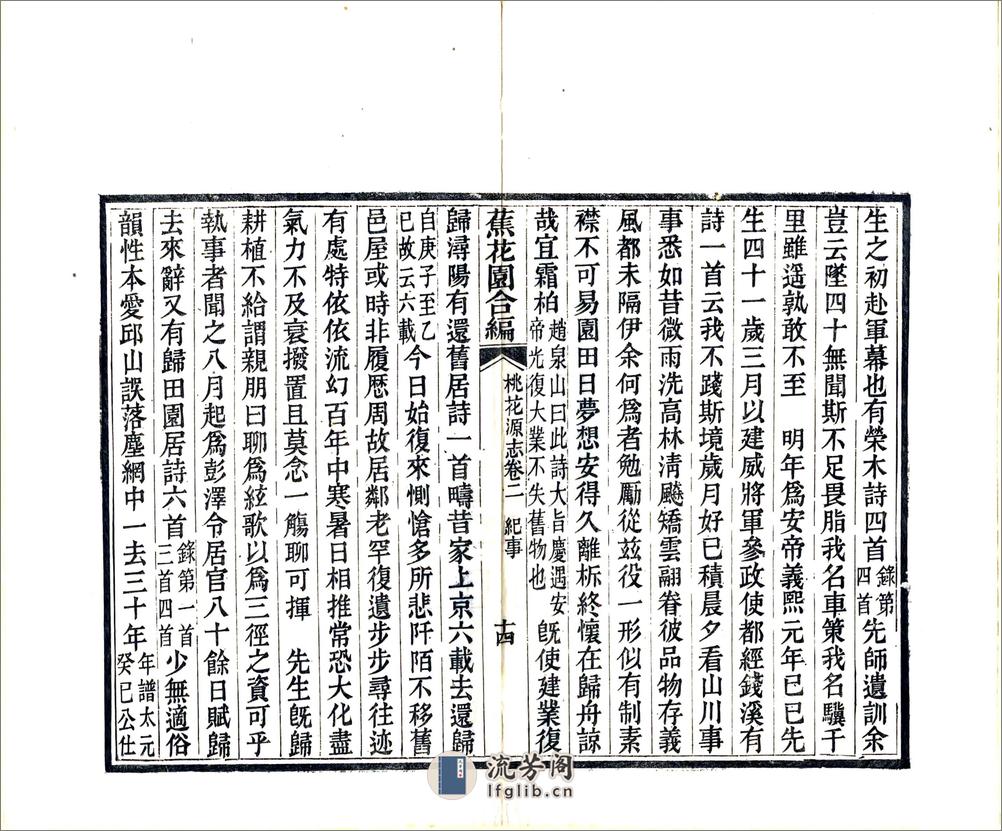 生之初赴軍幕也有榮木詩四首錄第四首先師遺訓余
豈云墜四十無聞斯不足畏脂我名車策我名驥千
里雖遥孰敢不至　明年為安帝義熙元年已巳先
生四十一歲三月以建威將軍參政使都經錢溪有
詩一首云我不踐斯境歲月好已積晨夕看山川事
事悉如昔微雨洗高林淸飈矯雲翮眷彼品物存義
風都未隔伊余何爲者勉勵從玆役一形似有制素
襟不可易園田日夢想安得久離析終懷在歸舟諒
哉宜霜柏趙泉山曰此詩大旨慶遇安帝光復大業不失舊物也　旣使建業復
蕉花園合編　桃花源志卷二　紀事　十四
歸潯陽有還舊居詩一首疇昔家上京六載去還歸
自庚子至乙巳故云六載今日始復來惻愴多所悲阡陌不移舊
邑屋或時非履歷周故居鄰老罕復遺步步尋往迹
有處特依依流幻百年中寒暑日相推常恐大化盡
氣力不及衰撥置且莫念一觴聊可揮　先生旣歸
耕植不給謂親朋曰聊爲絃歌以爲三徑之資可乎
執事者聞之八月起爲彭澤令居官八十餘日賦歸
去來辭又有歸田園居詩六首錄第一首三首四首少無適俗
韻性本愛邱山誤落塵網中一去三十年年譜太元癸巳公仕
流芳阁
lfglib.cn